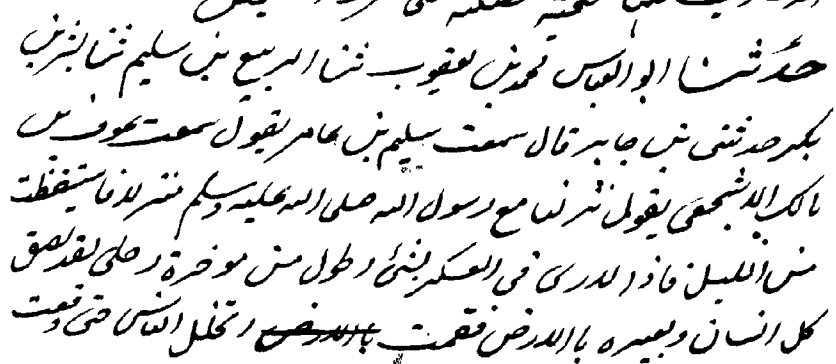 حدثنا ابو العباس محمد بن يعقوب ثنا الربيع بن سليم ثنا بشر بن
بكر حدثنى بن جابر قال سمعت سليم بن عامر يقول سمعت عوف بن
مالك الاشجعى يقول نزلنا مع رسول الله صلى الله عليه وسلم منزلا فاستيقظت
من الليل فاذا لا ارى فى العسكر شئ اطول من موخرة رحلى لقد لصق
كل انسان وبعيره باالارض فقمت باالارض اتخلل الناس حتى وقعت